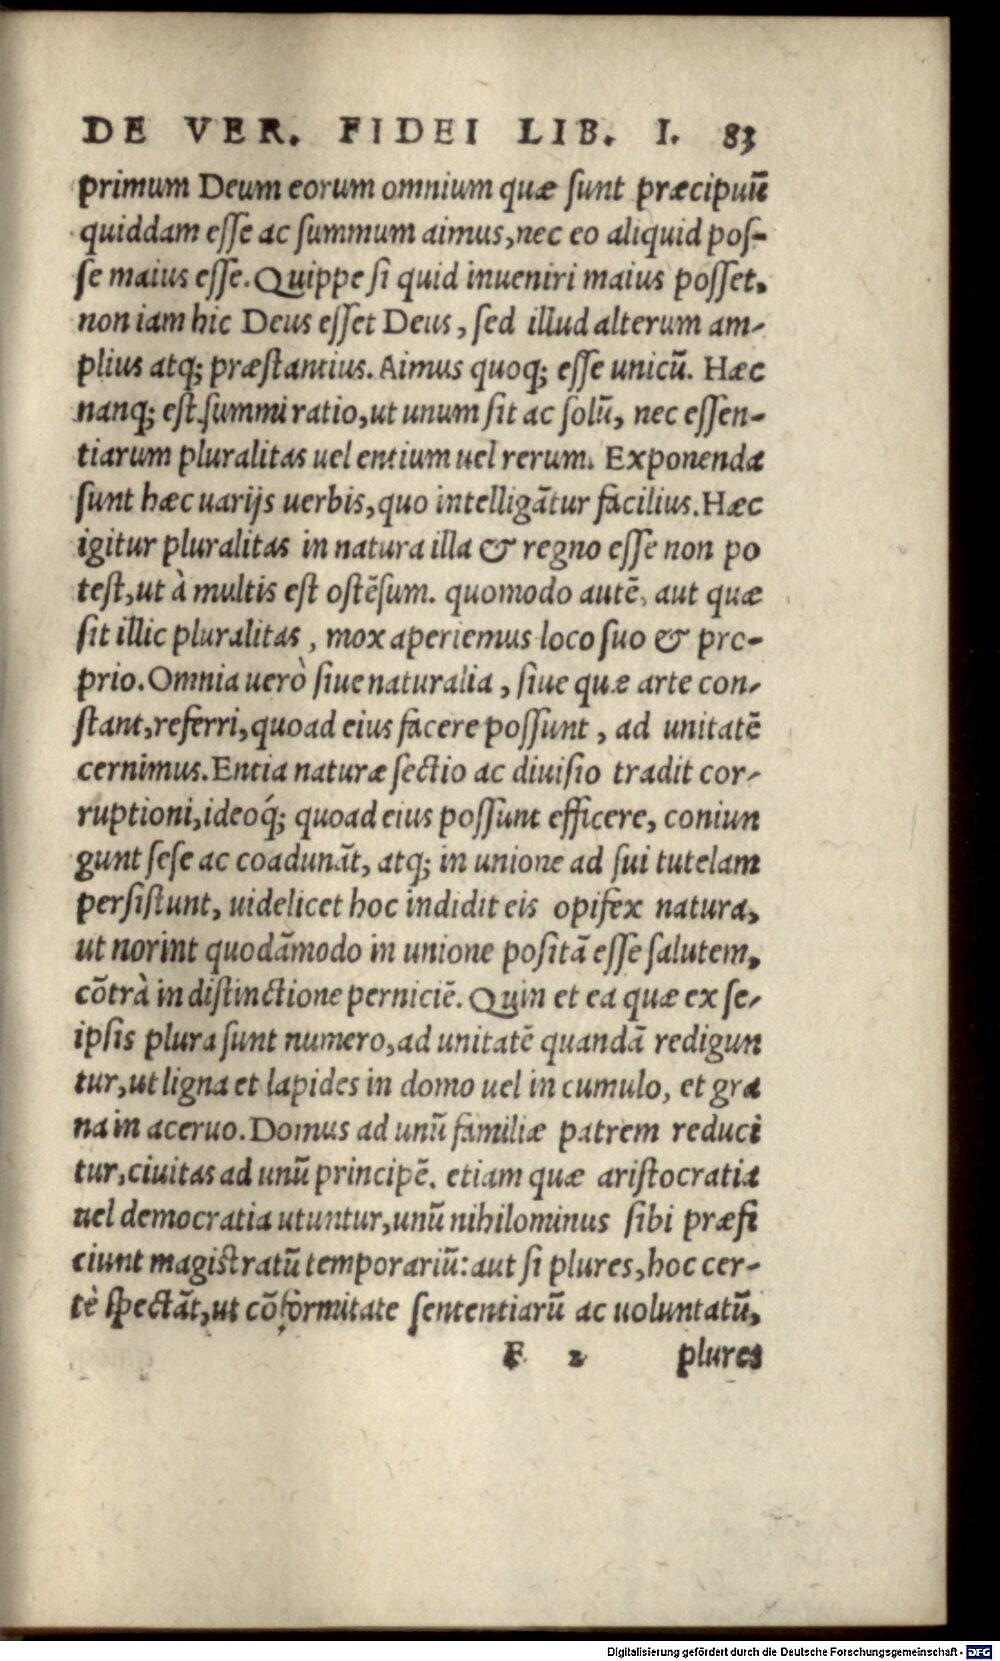 DE VER. FIDEI LIB. I. 83
primum Deum eorum omnium quæ sunt præcipuũ
quiddam esse ac summum aimus, nec eo aliquid pos-
se maius esse. Quippe si quid inueniri maius posset,
non iam hic Deus esset Deus, sed illud alterum am-
plius atq; præstantius. Aimus quoq; esse unicũ. Hæc
nanq; est summi ratio, ut unum sit ac solũ, nec essen-
tiarum pluralitas uel entium uel rerum. Exponenda
sunt hæc uarijs uerbis, quo intelligãtur facilius. Hæc
igitur pluralitas in natura illa & regno esse non po
test, ut à multis est ostẽsum. quomodo autẽ, aut quæ
sit illic pluralitas, mox aperiemus loco suo & pro-
prio. Omnia uerò siue naturalia, siue quæ arte con-
stant, referri, quoad eius facere possunt, ad unitatẽ
cernimus. Entia naturæ sectio ac diuisio tradit cor-
ruptioni, ideoq́; quoad eius possunt efficere, coniun
gunt sese ac coadunãt, atq; in unione ad sui tutelam
persistunt, uidelicet hoc indidit eis opifex natura,
ut norint quodãmodo in unione positã esse salutem,
cõtrà in distinctione perniciẽ. Quin et ea quæ ex se-
ipsis plura sunt numero, ad unitatẽ quandã redigun
tur, ut ligna et lapides in domo uel in cumulo, et gra
na in aceruo. Domus ad unũ familiæ patrem reduci
tur, ciuitas ad unũ principẽ. etiam quæ aristocratia
uel democratia utuntur, unũ nihilominus sibi præfi
ciunt magistratũ temporariũ: aut si plures, hoc cer-
tè spectãt, ut cõformitate sententiarũ ac uoluntatũ,
F 2 plures
Digitalisierung gefördert durch die Deutsche Forschungsgemeinschaft - DFG